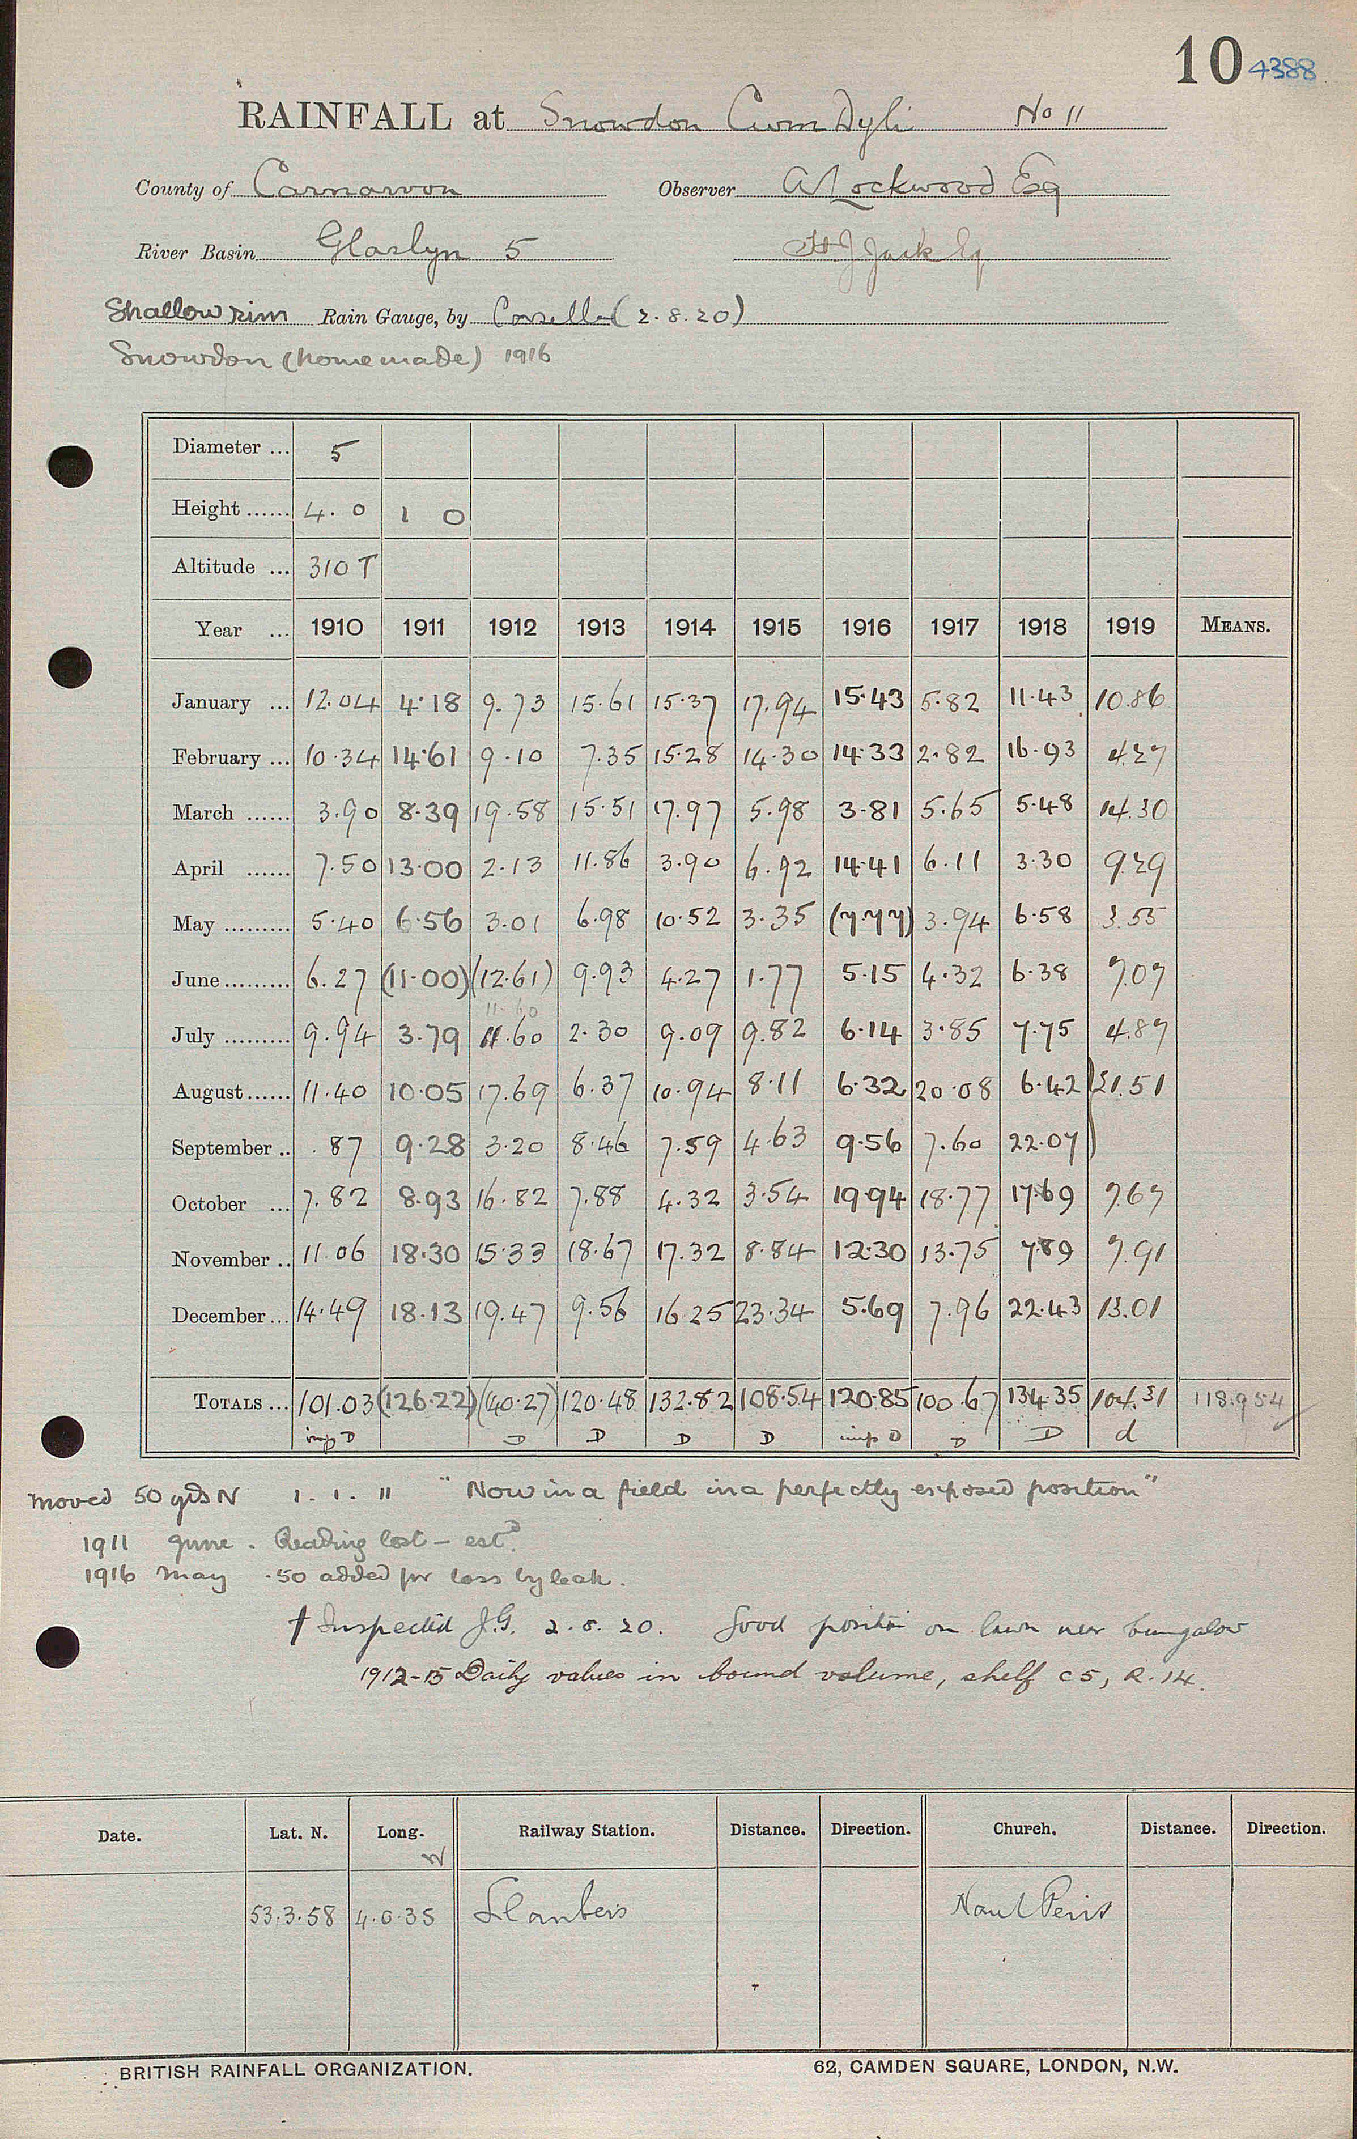 10 4388
RAINFALL at Snowdon Cwm Dyli No 11
County of Carnarvon Observer A Lockwood Esq
River Basin Glaslyn 5 H J Jack Esq
Shallow rim Rain Gauge, by Casella (2.8.20)
Snowdon (home made) 1916
Diameter ... 5
Height ...... 4. 0 1 0
Altitude ... 310 T
Year ... 1910 1911 1912 1913 1914 1915 1916 1917 1918 1919 MEANS.
January ... 12.04 4.18 9.73 15.61 15.37 17.94 15.43 5.82 11.43 10.86
February ... 10.34 14.61 9.10 7.35 15.28 14.30 14.33 2.82 16.93 4.27
March ...... 3.90 8.39 19.58 15.51 17.97 5.98 3.81 5.65 5.48 14.30
April ...... 7.50 13.00 2.13 11.86 3.90 6.92 14.41 6.11 3.30 9.29
May ......... 5.40 6.56 3.01 6.98 10.52 3.35 (7.77) 3.94 6.58 3.55
June ......... 6.27 (11.00) (12.61) 9.93 4.27 1.77 5.15 4.32 6.38 7.07
11.60
July ......... 9.94 3.79 11.60 2.30 9.09 9.82 6.14 3.85 7.75 4.87
August ...... 11.40 10.05 17.69 6.37 10.94 8.11 6.32 20.08 6.42 } 21.51
September .. .87 9.28 3.20 8.46 7.59 4.63 9.56 7.60 22.07
October ... 7.82 8.93 16.82 7.88 4.32 3.54 19.94 18.77 17.69 7.67
November .. 11.06 18.30 15.33 18.67 17.32 8.84 12.30 13.75 7.89 7.91
December ... 14.49 18.13 19.47 9.56 16.25 23.34 5.69 7.96 22.43 13.01
TOTALS ... 101.03 (126.22) (140.27) 120.48 132.82 108.54 120.85 100.67 134.35 104.31 118.954
imp D D D D D imp D D D d
moved 50 yds N 1. 1. 11 "Now in a field in a perfectly exposed position"
1911 June. Reading lost - estd.
1916 May .50 added for loss by leak.
† Inspected J.G. 2.8.20. Good position on lawn near bungalow
1912-15 Daily values in bound volume, shelf C5, R.14.
Date. Lat. N. Long. W Railway Station. Distance. Direction. Church. Distance. Direction.
53.3.58 4.0.35 Llanberis Nant Peris
BRITISH RAINFALL ORGANIZATION. 62, CAMDEN SQUARE, LONDON, N.W.